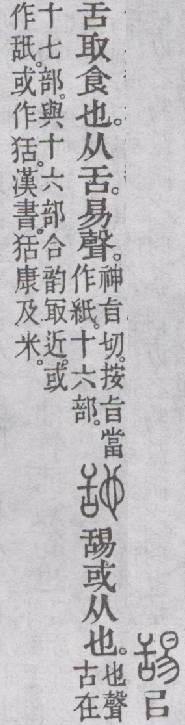 舓㠯
舌取食也。从舌。易聲。神㫖切。按㫖當
作紙。十六部。
𦧧舓或从也。也聲
古在
十七部。與十六部合韵㝡近。或
作舐。或作狧。漢書。狧康及米。